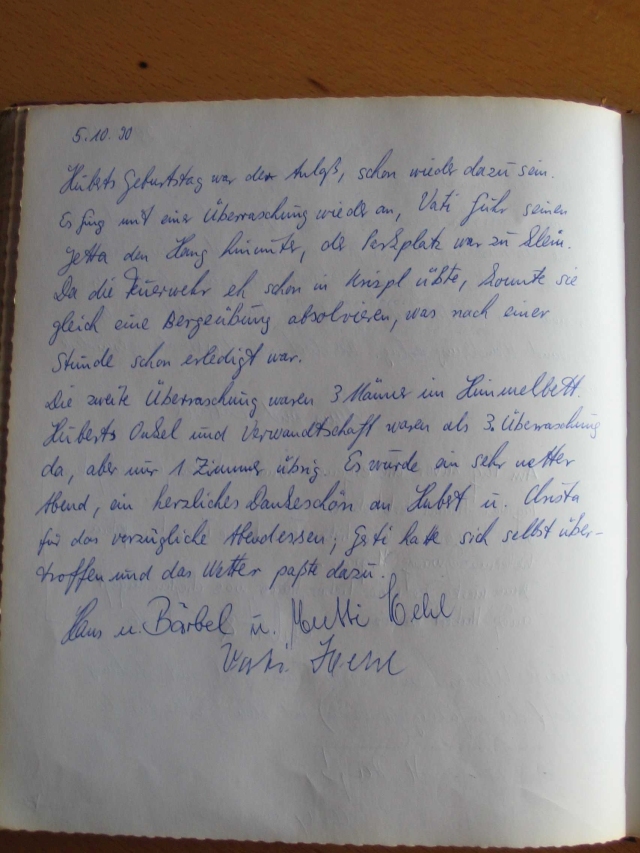 5.10.90
Huberts Geburtstag war der Anlaß, schon wieder da zu sein.
Es fing mit einer Überraschung wieder an, Vati fuhr seinen
Jetta den Hang hinunter, der Parkplatz war zu klein.
Da die Feuerwehr eh schon in Krispl übte, konnte sie
gleich eine Bergeübung absolvieren, was nach einer
Stunde schon erledigt war.
Die zweite Überraschung waren 3 Männer im Himmelbett.
Huberts Onkel und Verwandtschaft waren als 3. Überraschung
da, aber nur 1 Zimmer übrig. Es wurde ein sehr netter
Abend, ein herzliches Dankeschön an Hubert u. Christa
für das vorzügliche Abendessen; Gerti hatte sich selbst über-
troffen und das Wetter paßte dazu.
Hans u. Bärbel u. Mutti
Vati